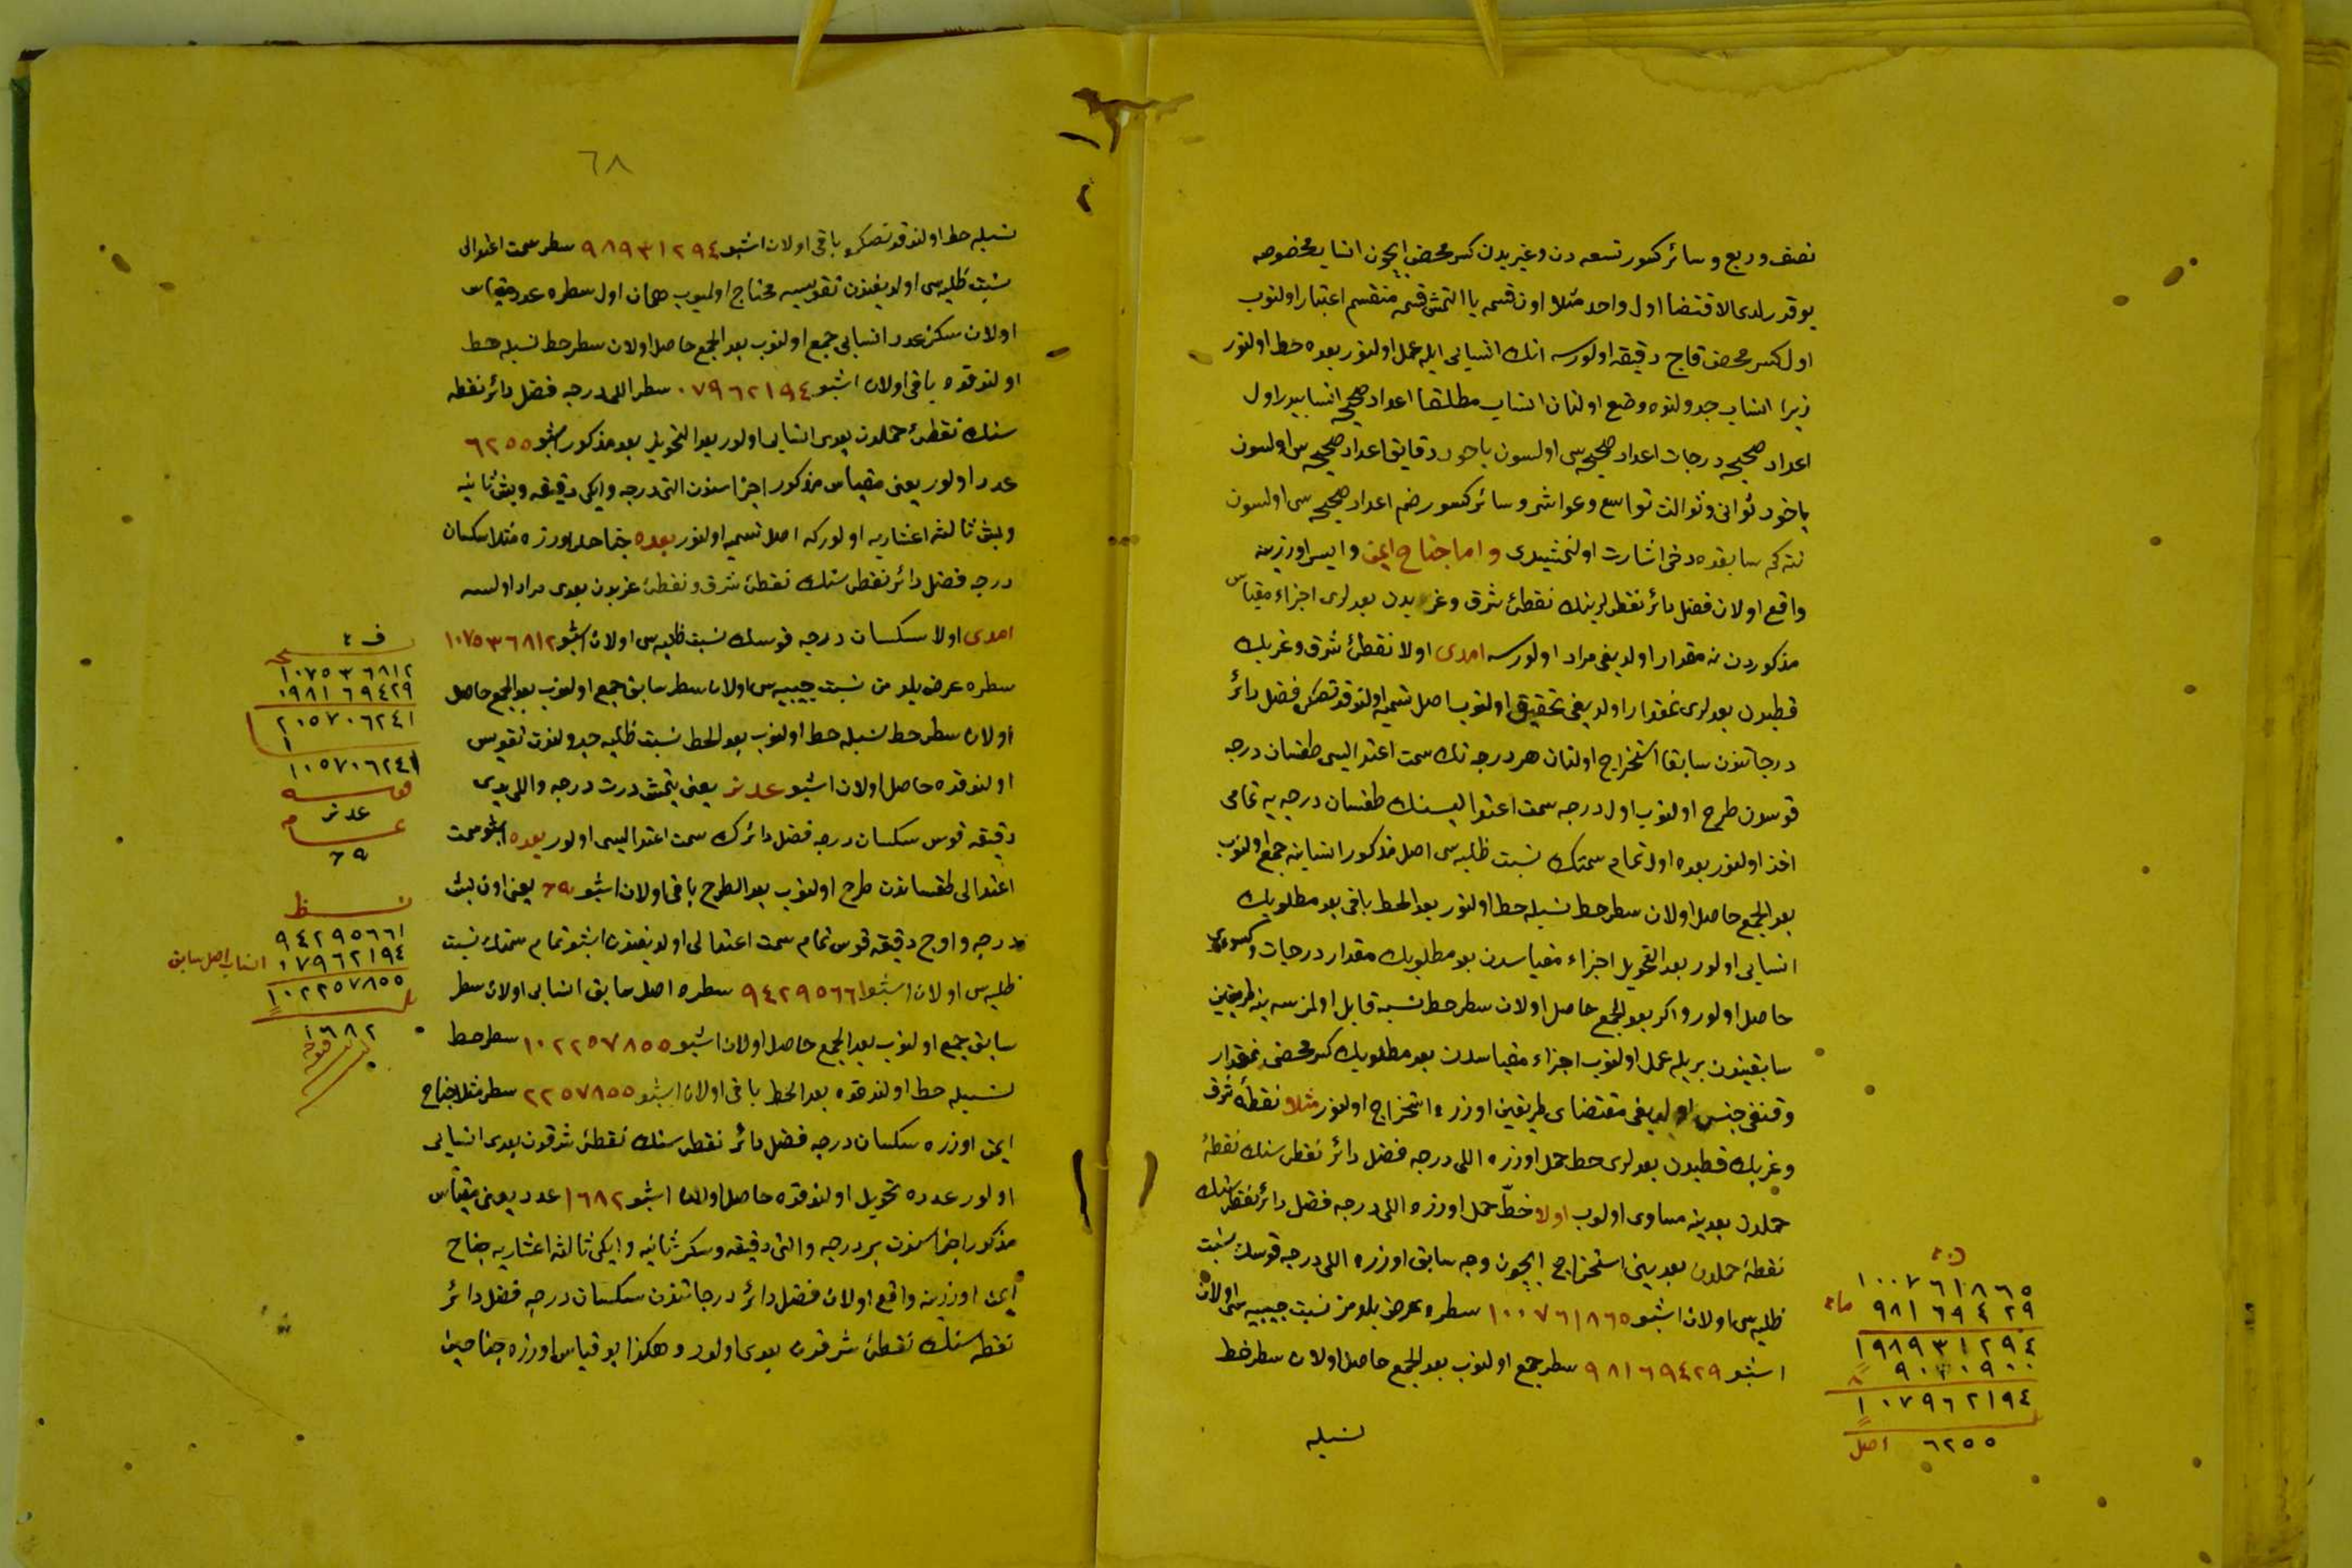 نصف وربع وسائر كسور تسعه دن وغيريدن كسر محض ايچون انساب مخصوصه
يوقدر لدى الاقتضا اول واحد مثلا اون قسمه يا التمش قسمه منقسم اعتبار اولنوب
اول كسر محض قاچ دقيقه اولورسه انك انسابى ايله عمل اولنور بعده حط اولنور
زيرا انساب جدولنده وضع اولنان انساب مطلقا اعداد صحيحه انسابيدر اول
اعداد صحيحه درجات اعداد صحيحه سى اولسون ياخود دقايق اعداد صحيحه سى اولسون
ياخود ثوانى وثوالث تواسع وعواشر وسائر كسور ضم اعداد صحيحه سى اولسون
نته كم سابقده دخى اشارت اولنمشيدى واما جناح ايمن وايسر اوزرينه
واقع اولان فضل دائر نقطه لرينك نقطۀ شرق وغربدن بعدلرى اجزاء مقياس
مذكوردن نه مقدار اولديغى مراد اولورسه امدى اولا نقطۀ شرق وغربك
قطبدن بعدلرى نمقدار اولديغى تحقيق اولنوب اصل تسميه اولندقدنصكره فضل دائر
درجاتندن سابقا استخراج اولنان هر درجه نك سمت اعتداليسى طقسان درجه
قوسدن طرح اولنوب اول درجه سمت اعتداليسنك طقسان درجه يه تمامى
اخذ اولنور بعده اول تمام سمتك نسبت ظليه سى اصل مذكور انسابنه جمع اولنوب
بعد الجمع حاصل اولان سطر حط نسبله حط اولنور بعد الحط باقى بعد مطلوبك
انسابى اولور بعد التحويل اجزاء مقياسدن بعد مطلوبك مقدار درجات وكسورى
حاصل اولور واكر بعد الجمع حاصل اولان سطر حط نسبه قابل اولمزسه ينه طريقين
سابقيندن بريله عمل اولنوب اجزاء مقياسدن بعد مطلوبك كسر محضى نمقدار
وقنغى جنس اولديغى مقتضاى طريقين اوزره استخراج اولنور مثلا نقطۀ شرق
وغربك قطبدن بعدلرى خط حمل اوزره اللى درجه فضل دائر نقطه سنك نقطۀ
حملدن بعدينه مساوى اولوب اولا خط حمل اوزره اللى درجه فضل دائر نقطه سنك
نقطۀ حملدن بعدينى استخراج ايچون وجه سابق اوزره اللى درجه قوسك نسبت
ظليه سى اولان اشبو ١٠٠٧٦١٨٦٥ سطره عرض بلدمز نسبت جيبيه سى اولان
اشبو ٩٨١٦٩٤٢٩ سطر جمع اولنوب بعد الجمع حاصل اولان سطر خط
نسبله
١٠٠٧٦١٨٦٥
٩٨١٦٩٤٢٩
١٩٨٩٣١٢٩٤
١٠٧٩٦٢١٩٤
٦٢٥٥ اصل
٦٨
نسبله حط اولندقدنصكره باقى اولان اشبو ٩٨٩٣١٢٩٤ سطر سمت اعتدالى
نسبت ظليه سى اولديغندن تقويسه محتاج اولميوب همان اول سطره عدد مقياس
اولان سكز عدد انسابى جمع اولنوب بعد الجمع حاصل اولان سطر حط نسبله حط
اولندقده باقى اولان اشبو ٠٧٩٦٢١٩٤ سطر اللى درجه فضل دائر نقطه
سنك نقطۀ حملدن بعدى انسابى اولور بعد التحويل بعد مذكور اشبو ٦٢٥٥
عدد اولور يعنى مقياس مذكور اجزاسندن التى درجه وايكى دقيقه وبش ثانيه
وبش ثالثه اعشاريه اولور كه اصل تسميه اولنور بعده جناحلر اوزره مثلا سكسان
درجه فضل دائر نقطه سنك نقطۀ شرق ونقطۀ غربدن بعدى مراد اولسه
امدى اولا سكسان درجه قوسك نسبت ظليه سى اولان اشبو ١٠٧٥٣٦٨١٢
سطره عرض بلدمز نسبت جيبيه سى اولان سطر سابق جمع اولنوب بعد الجمع حاصل
اولان سطر حط نسبله حط اولنوب بعد الحط نسبت ظليه جدولندن تقويس
اولندقده حاصل اولان اشبو عد نز يعنى يتمش درت درجه واللى يدى
دقيقه قوس سكسان درجه فضل دائرك سمت اعتداليسى اولور بعده اشبو سمت
اعتدالى طقساندن طرح اولنوب بعد الطرح باقى اولان اشبو يعنى اون بش
درجه واوچ دقيقه قوس تمام سمت اعتدالى اولديغندن اشبو تمام سمتك نسبت
ظليه سى اولان اشبو ٩٤٢٩٥٦٦١ سطره اصل سابق انسابى اولان سطر
سابق جمع اولنوب بعد الجمع حاصل اولان اشبو ١٠٢٢٥٧٨٥٥ سطر حط
نسبله حط اولندقده بعد الحط باقى اولان اشبو ٢٢٥٧٨٥٥ سطر مثلا جناح
ايمن اوزره سكسان درجه فضل دائر نقطه سنك نقطۀ شرقدن بعدى انسابى
اولور عدده تحويل اولندقده حاصل اولان اشبو ١٦٨٢ عدد يعنى مقياس
مذكور اجزاسندن بر درجه والتى دقيقه وسكز ثانيه وايكى ثالثه اعشاريه جناح
ايمن اوزرينه واقع اولان فضل دائر درجاتندن سكسان درجه فضل دائر
نقطه سنك نقطۀ شرقدن بعدى اولور وهكذا بو قياس اوزره جناحين
١٠٧٥٣٦٨١٢
٠٩٨١٦٩٤٢٩
٢٠٥٧٠٦٢٤١
١٠٥٧٠٦٢٤١
قوسه
عد نز
٩٤٢٩٥٦٦١
٠٧٩٦٢١٩٤ انساب اصل سابق
١٠٢٢٥٧٨٥٥
١٦٨٢